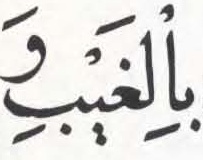 بِالْغَيْبِ وَ